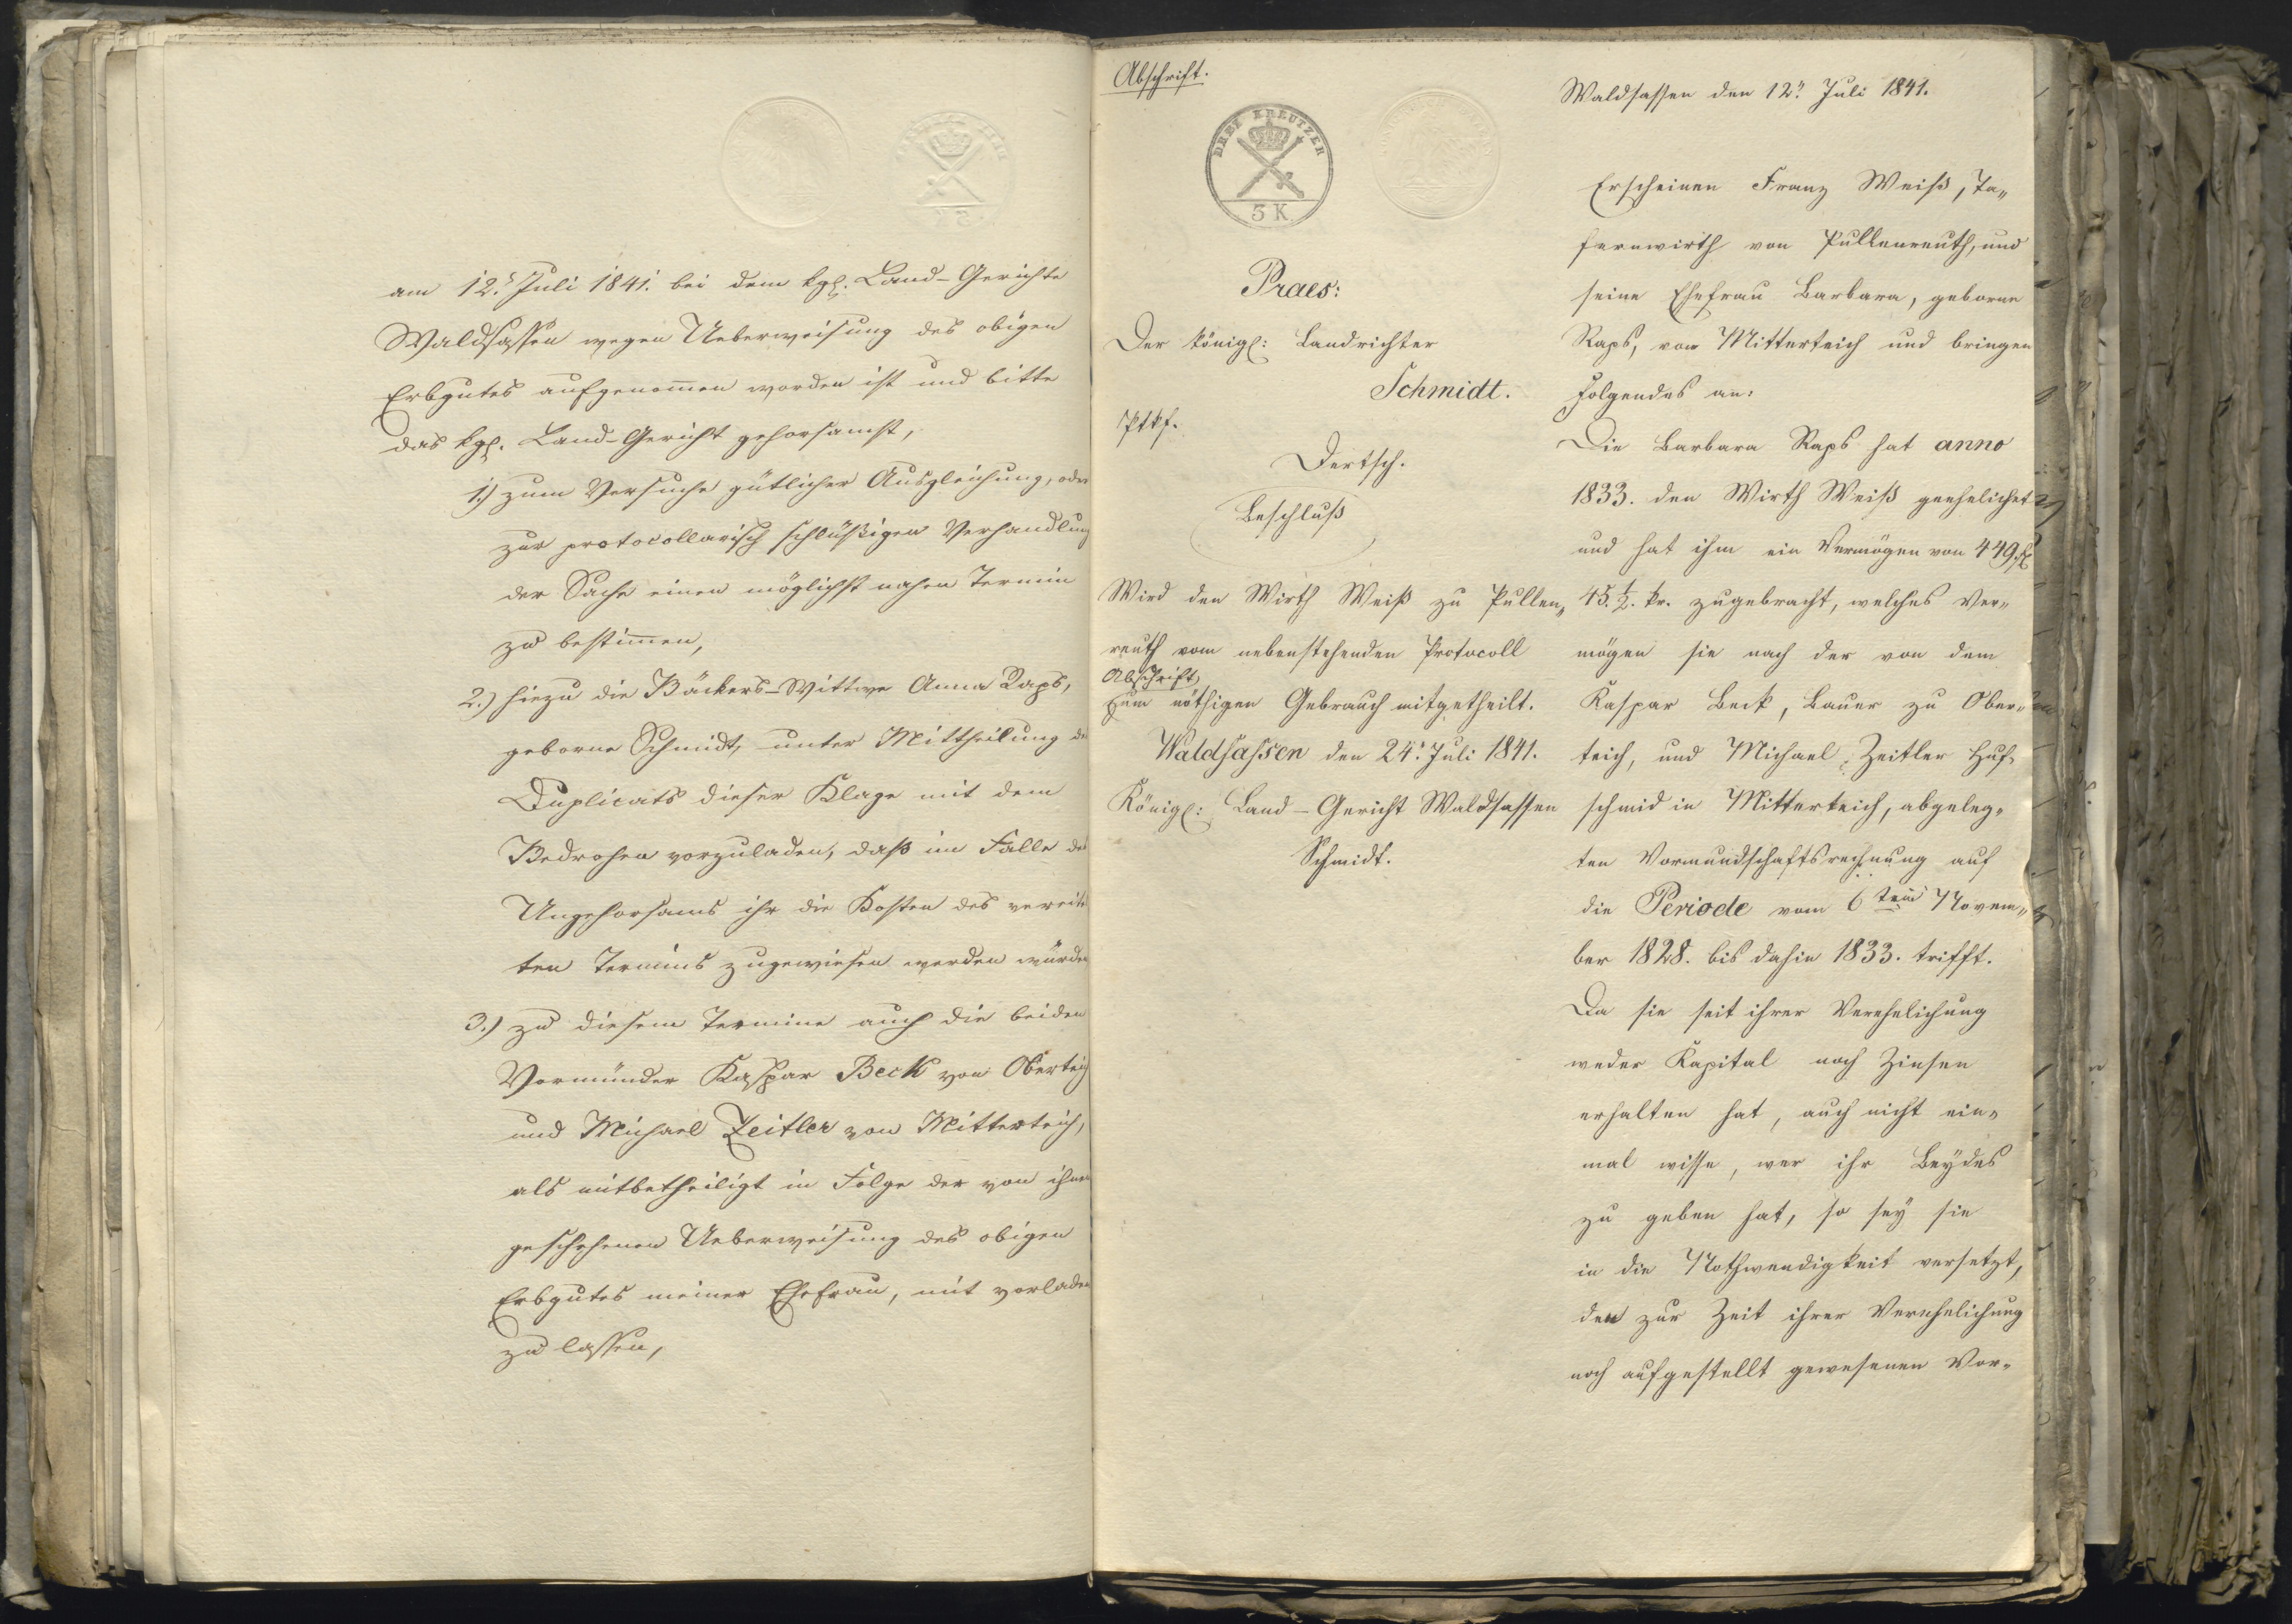 am 12. Juli 1841. bei dem kgl. Land-Gerichte
Waldsassen wegen Ueberweisung des obigen
Erbgutes aufgenom̅en worden ist und bitte
das kgl. Land-Gericht gehorsamst,
1.) zum Versuche gütlicher Ausgleichung, oder
zur protocollarisch schlüßigen Verhandlung
der Sache einen möglichst nahen Termin
zu bestim̅en,
2.) hiezu die Bäckers-Wittwe Anna Raps,
geborne Schmidt, unter Mittheilung des
Duplicats dieser Klage mit dem
Bedrohen vorzuladen, daß im Falle des
Ungehorsams ihr die Kosten des vereitel
ten Termins zugewiesen werden würden
3.) zu diesem Termine auch die beiden
Vormünder Kaspar Beck von Oberteich
und Michael Zeitler von Mitterteich,
als mitbetheiligt in Folge der von ihnen
geschehenen Ueberweisung des obigen
Erbgutes meiner Ehefrau, mit vorladen
zu lassen,
Abschrift.
DREY KREUTZER
3 K.
Praes:
Der königl: Landrichter
Schmidt.
Ptkf.
Dertsch.
Beschluß
Wird den Wirth Weiß zu Pullen„
reuth vom nebenstehenden Protocoll
Abschrift
zum nöthigen Gebrauch mitgetheilt.
Waldsassen den 24. Juli 1841.
Königl: Land-Gericht Waldsassen
Schmidt.
Waldsassen den 12. Juli 1841.
Erscheinen Franz Weiß, Ta„
fernwirth von Pullenreuth, und
seine Ehefrau Barbara, geborne
Raps, von Mitterteich und bringen
Folgendes an:
Die Barbara Raps hat anno
1833. den Wirth Weiß geehelichet
und hat ihm ein Vermögen von 449 fl
45. ½. kr. zugebracht, welches Ver„
mögen sie nach der von dem
Kaspar Beck, Bauer zu Ober„
teich, und Michael Zeitler Huf„
schmid in Mitterteich, abgeleg„
ten Vormundschaftsrechnung auf
die Periode vom 6ten Novem„
ber 1828. bis dahin 1833. trifft.
Da sie seit ihrer Verehelichung
weder Kapital noch Zinsen
erhalten hat, auch nicht ein„
mal wisse, wer ihr Beydes
zu geben hat, so sey sie
in die Nothwendigkeit versetzt,
den zur Zeit ihrer Verehelichung
noch aufgestellt gewesenen Vor„